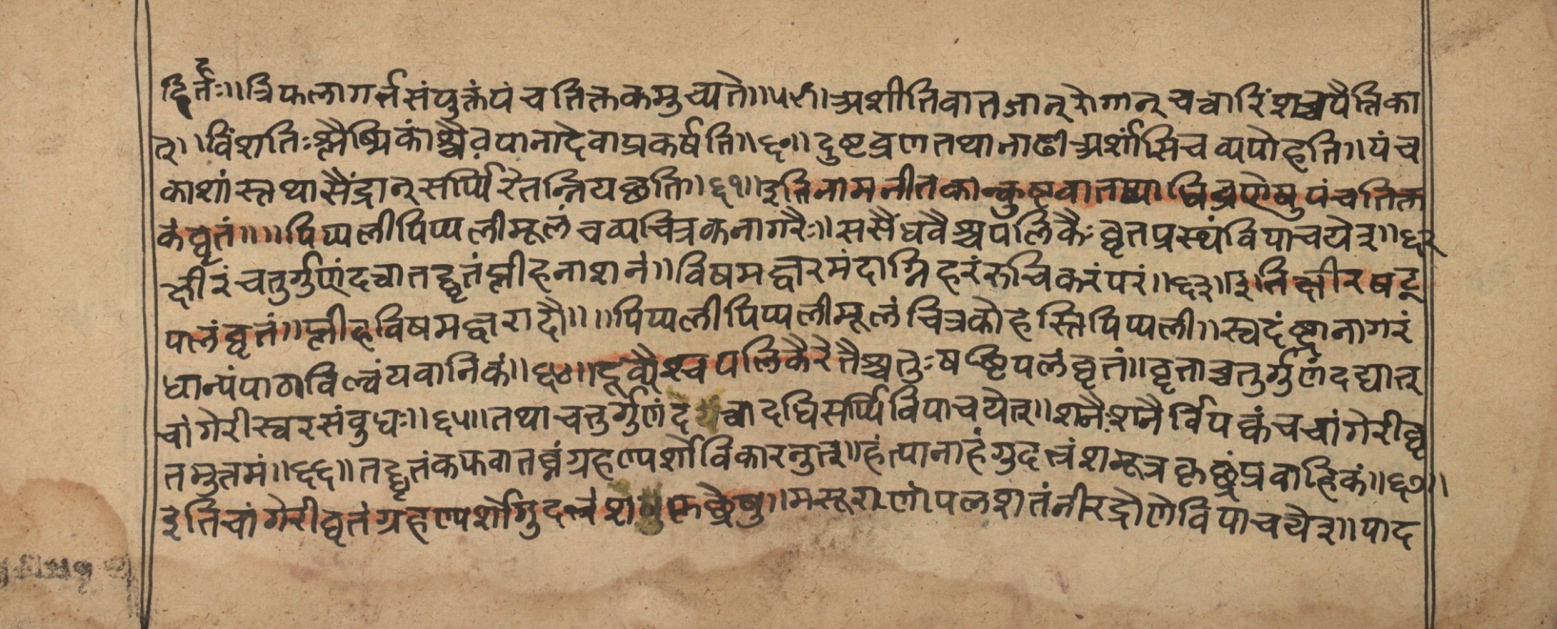 द्भिर्तः॥त्रिफलागर्त्तसंयुक्तंपंचतिक्तकमुच्यते॥५९॥अशीतिवातजान्रोगान्चत्वारिंशच्चपैत्तिका
न्॥विंशतिःश्लैष्मिकांश्चैवपानादेवाप्रकर्षति॥६०॥दुष्टव्रणतथानाडीअर्शांसिचव्यपोहति॥पंच
काशांस्तथासैंद्रान्सर्प्पिरेतन्नियछति॥६१॥इतिनामनीतकान्कुष्टवातव्याधिव्रणेषुपंचतिक्त
कंघृतं॥॥पिप्पलीपिप्पलीमूलंचव्यचित्रकनागरैः॥ससैंधवैश्चपलिकैःघृतप्रस्थंविपाचयेत्॥६२
क्षीरंचतुर्गुणंदद्यातद्घृतंप्लीहनाशनं॥विषमद्वारमंदाग्निहरंरुचिकरंपरं॥६३॥इतिक्षीरषट्
पलंघृतं॥प्लीहविषमद्वरादौ॥॥पिप्पलीपिप्पलीमूलंचित्रकोहस्तिपिप्पली॥स्वदंष्ट्रानागरं
धान्यंपाठाविल्वंयवानिकं॥६४॥द्रवैश्चपलिकैरेतैश्चतुःषष्टिपलंघृतं॥घृताच्चतुर्गुणंदद्यात्
चांगेरीस्वरसंवुधः॥६५॥तथाचत्तुर्गुणंदत्वादधिसर्प्पिविपाचयेत्॥शनैःशनैर्विपक्वंचचांगेरीघृ
तमुत्तमं॥६६॥तद्घृतंकफवातघ्नंग्रहण्यर्शोविकारनुत्॥हंत्यानाहंगुदभ्रंशमूत्रकृछ्रंप्रवाहिकं॥६७॥
इतिचांगेरीघृतंग्रहण्यर्शोगुदभ्रंशमुत्रकृछ्रेषु॥मसूराणांपलशतंनीरद्रोणेविपाचयेत्॥पाद